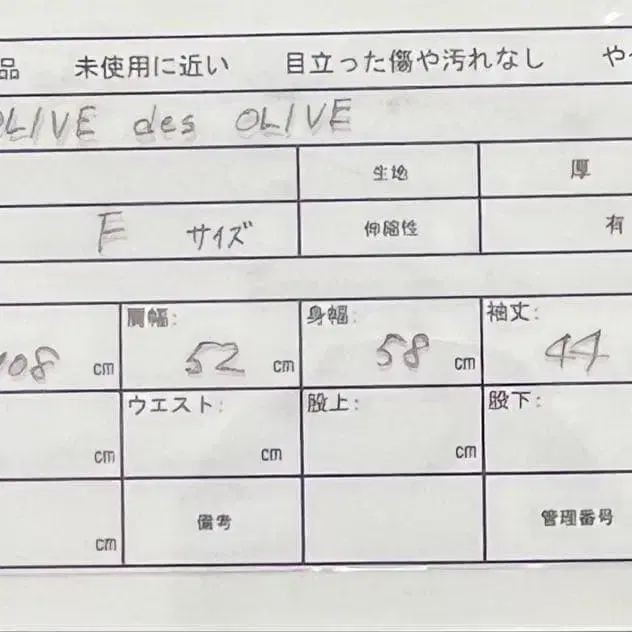 品 未使用に近い 目立った傷や汚れなし や
OLIVE des OLIVE
生地 厚
F サイズ 伸縮性 有
肩幅: 身幅: 袖丈:
108 cm 52 cm 58 cm 44
ウエスト: 股上: 股下:
cm cm cm
cm 備考 管理番号